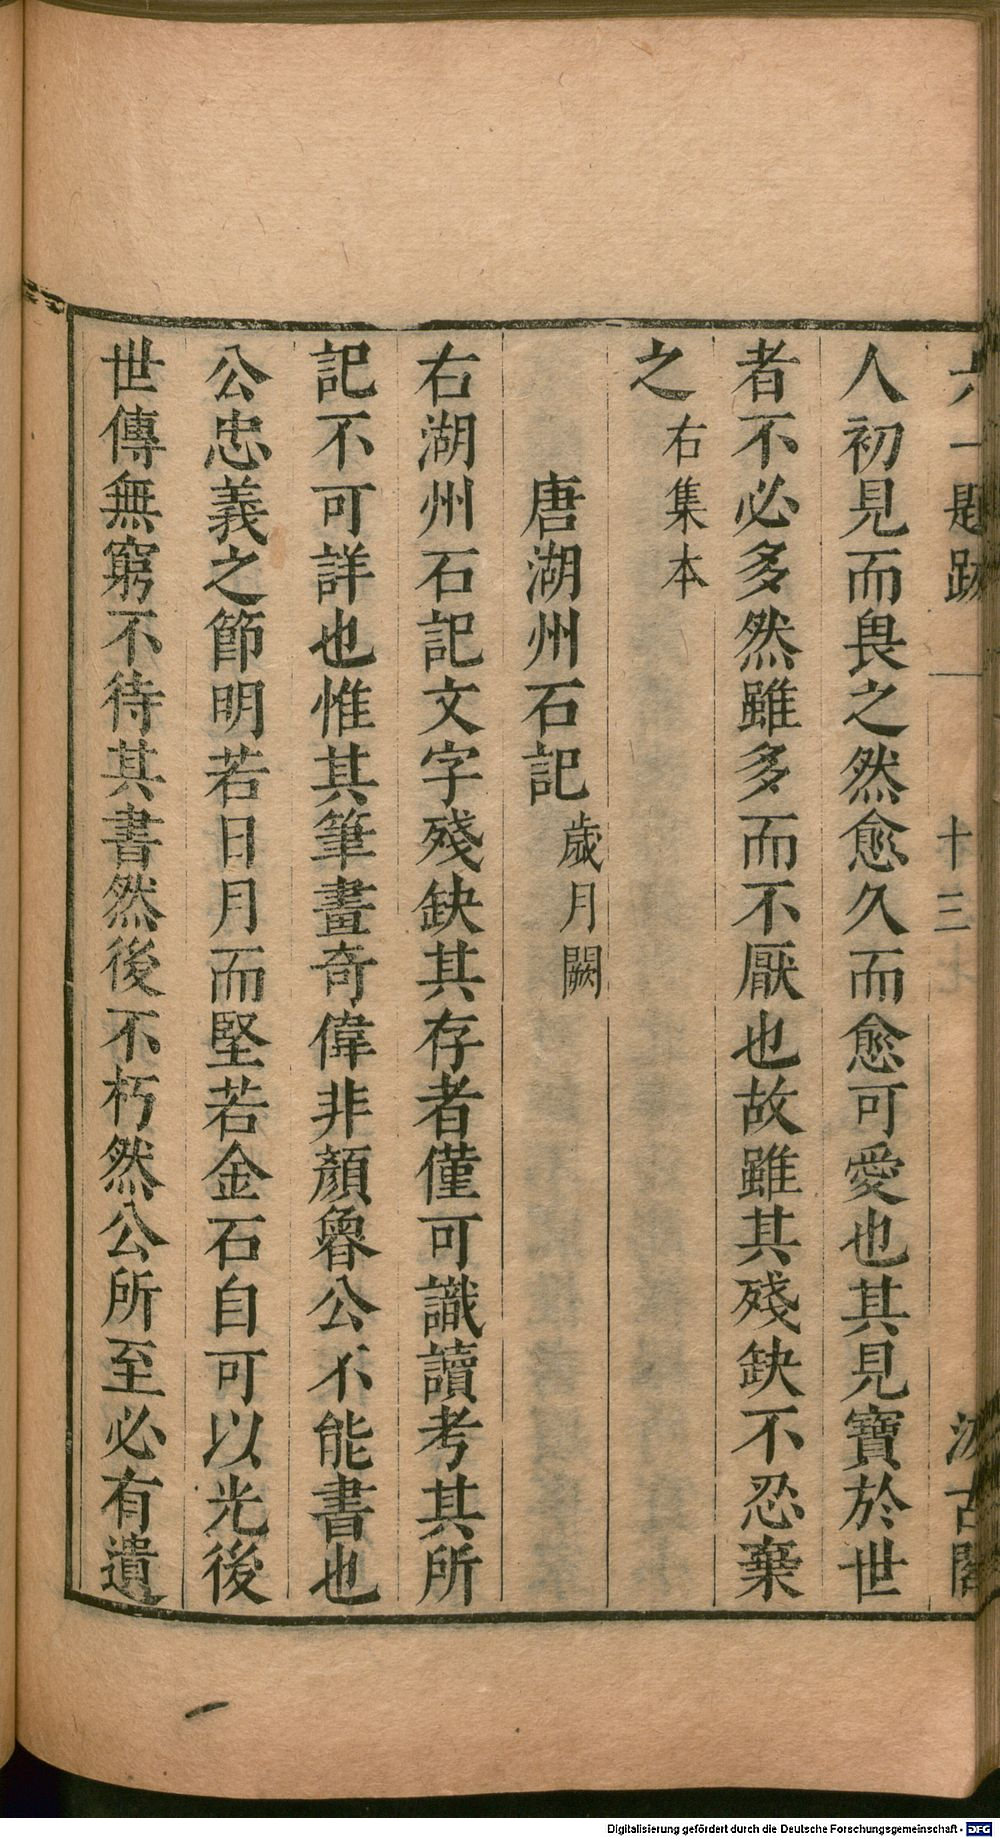 六一題跋 十三 汲古閣
人初見而畏之然愈久而愈可愛也其見寶於世
者不必多然雖多而不厭也故雖其殘缺不忍棄
之右集本
唐湖州石記歲月闕
右湖州石記文字殘缺其存者僅可識讀考其所
記不可詳也惟其筆畫奇偉非顏魯公不能書也
公忠義之節明若日月而堅若金石自可以光後
世傳無窮不待其書然後不朽然公所至必有遺
Digitalisierung gefördert durch die Deutsche Forschungsgemeinschaft - DFG